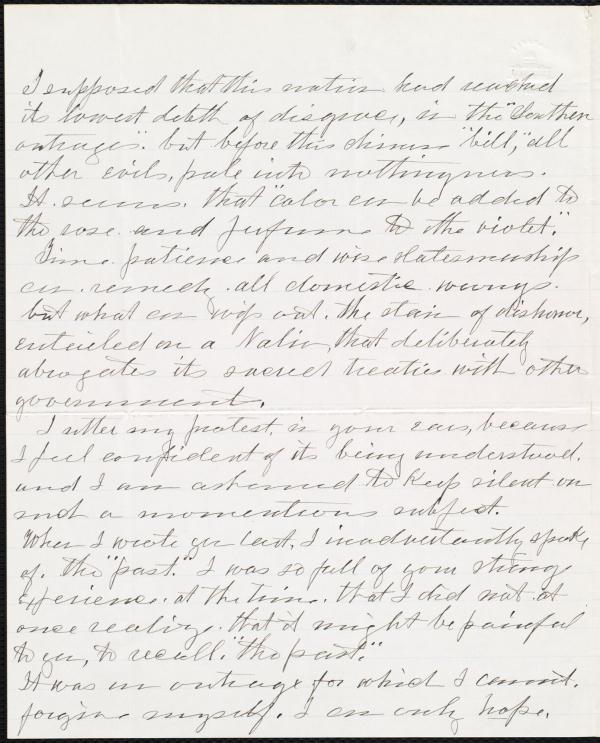 I supposed that this nation had reached
its lowest debth of disgrace, in the "Southern
outrages". but before this chinese "bill," all
other evils, pale into nothingness.
It seems. that "color can be added to
the rose. and perfume to the violet."
Time. patience and wise statesmanship
can. remedy. all domestic. wrongs.
but what can wipe out. the stain of dishonor,
entailed on a Nation, that deliberately
abrogates its sacred treaties with other
governments.
I utter my protest. in your ears, because
I feel confident of its being understood.
and I am ashamed to keep silent on
such a momentious subject.
When I wrote you last, I inadvertantly spoke
of. the "past." I was so full of your strange
experience. at the time. that I did not at
once realize. that it might be painful
to you, to recall. "the past."
It was an outrage for which I cannot.
forgive myself. I can only hope.